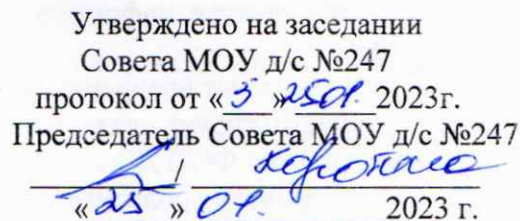 Утверждено на заседании
Совета МОУ д/с №247
протокол от «5» 25.01. 2023г.
Председатель Совета МОУ д/с №247
/
«25» 01. 2023 г.